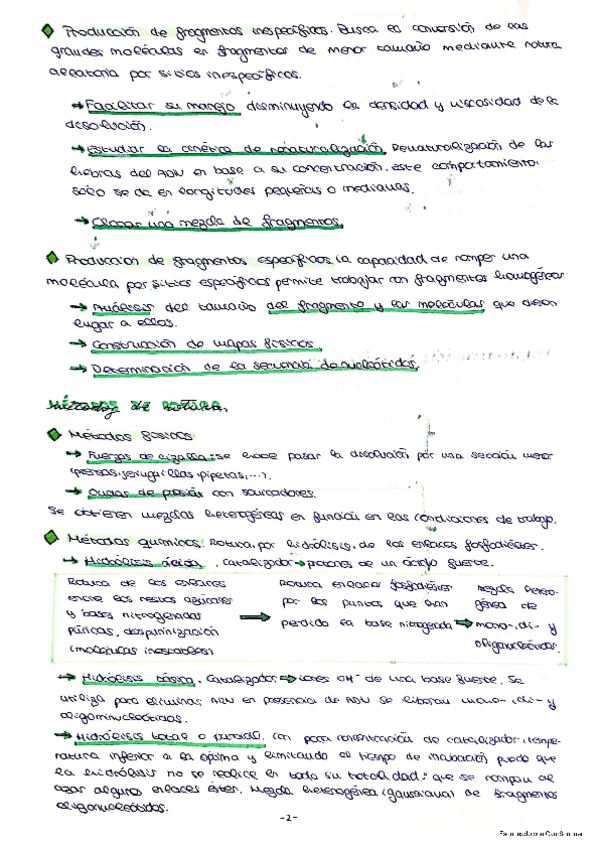 Producción de fragmentos inespecíficos. Busca la conversión de las
grandes moléculas en fragmentos de menor tamaño mediante rotura
aleatoria por sitios inespecíficos.
→ Facilitar su manejo disminuyendo la densidad y viscosidad de la
disolución.
→ Estudiar la cinética de renaturalización. Renaturalización de las
hebras del ADN en base a su concentración. este comportamiento
sólo se da en longitudes pequeñas o medianas.
→ Clonar una mezcla de fragmentos.
Producción de fragmentos específicos. la capacidad de romper una
molécula por sitios específicos permite trabajar con fragmentos homogéneos
→ Análisis del tamaño del fragmento y las moléculas que dieron
lugar a ellos.
→ Construcción de mapas físicos.
→ Determinación de la secuencia de nucleótidos.
Métodos de ROTURA.
Métodos físicos
→ Fuerzas de cizalla: se hace pasar la disolución por una sección menor
jeringuillas, pipetas, ...).
→ Ondas de presión con sonicadores.
Se obtienen mezclas heterogéneas en función en las condiciones de trabajo.
Métodos químicos. Rotura, por hidrólisis, de los enlaces fosfodiéster.
→ Hidrólisis ácida. catalizador → protones de un ácido fuerte.
Rotura de los enlaces
entre los restos azúcares
y bases nitrogenadas
púricas, despurinización
(moléculas inestables)
→
Rotura enlace fosfodiéster
por los puntos que han
perdido la base nitrogenada
→
mezcla hetero-
génea de
mono-, di- y
oligonucleótidos.
→ Hidrólisis básica. Catalizador → iones OH⁻ de una base fuerte. Se
utiliza para eliminar ARN en presencia de ADN se liberan mono-, di- y
oligominucleótidos.
→ Hidrólisis total o parcial. con poca concentración de catalizador, tempe-
ratura inferior a la óptima y limitando el tiempo de incubación puedo que
la hidrólisis no se realice en toda su totalidad: que se rompan al
azar algunos enlaces éster. Mezcla heterogénea (gaussiana) de fragmentos
oligonucleótidos.
-2-